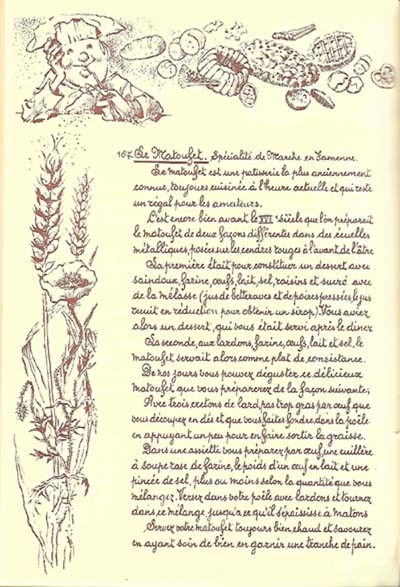 167. Le Matoufet. Spécialité de Marche en Famenne.
Le matoufet est une patisserie la plus anciennement
connue, toujours cuisinée à l'heure actuelle et qui reste
un régal pour les amateurs.
C'est encore bien avant le XVIe siècle que l'on préparait
le matoufet de deux façons différentes dans des écuelles
métalliques, posées sur les cendres rouges à l'avant de l'âtre
La première était pour constituer un dessert avec
saindoux, farine, œufs, lait, sel, raisins et sucré avec
de la mélasse (jus de betteraves et de poires pressées, le jus
recuit en réduction pour obtenir un sirop). Vous aviez
alors un dessert, qui vous était servi après le dîner
La seconde, aux lardons, farine, œufs, lait et sel, le
matoufet servait alors comme plat de consistance.
De nos jours vous pouvez déguster ce délicieux
matoufet que vous préparerez de la façon suivante;
Avec trois cretons de lard pas trop gras par œuf que
vous découpez en dés et que vous faites fondre dans la poêle
en appuyant un peu pour en faire sortir la graisse.
Dans une assiette vous préparez par œuf, une cuillère
à soupe rase de farine, le poids d'un œuf en lait et une
pincée de sel, plus ou moins selon la quantité que vous
mélangez. Versez dans votre poêle avec lardons et tournez
dans ce mélange jusqu'à ce qu'il s'épaississe à matons
Servez votre matoufet toujours bien chaud et savourez
en ayant soin de bien en garnir une tranche de pain.